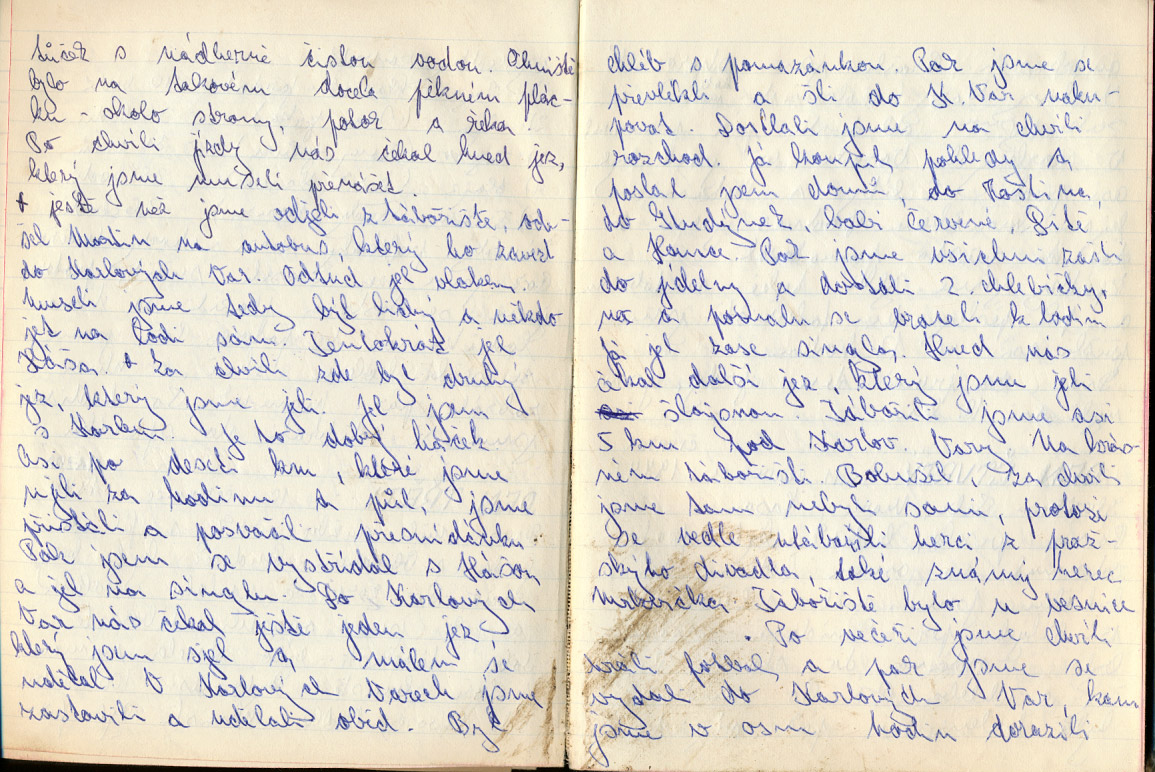 s nádherně čistou vodou. Ohniště
bylo na takovém docela pěkném plác-
ku - okolo stromy, potok a řeka.
Po chvíli jízdy nás čekal hned jez,
který jsme museli přenášet.
ještě než jsme odjeli z tábořiště, ode-
šel Martin na autobus, který ho zavezl
do Karlových Var. Odtud jel vlakem.
museli jsme tedy být lichý a někdo
jet na lodi sám. Tentokrát jel
Hása. Za chvíli zde byl druhý
jez, který jsme jeli. Jel jsem
s Karlem. Je to dobrý háček.
Asi po deseti km, které jsme
ujeli za hodinu a půl, jsme
přistáli a posvačili přesnídávku.
Pak jsem se vystřídal s Hásou
a jel na singlu. Do Karlových
Var nás čekal ještě jeden jez
který jsem sjel a málem se
udělal. V Karlových Varech jsme
zastavili a udělali oběd. Byl
chléb s pomazánkou. Pak jsme se
převlékli a šli do K. Var naku-
povat. Dostali jsme na chvíli
rozchod. Já koupil pohledy a
poslal jsem domů, do
do Babi Červené,
a Hance. Pak jsme všichni zašli
do jídelny a dostali 2 chlebíčky,
a pomalu se vraceli k lodím
Já jel zase singla. Hned nás
čekal další jez, který jsme jeli
šlajsnou. Tábořili jsme asi
5 km pod Karlov. Vary, na krás-
ném tábořišti. Bohužel, za chvíli
jsme tam nebyli sami, protože
se vedle utábořili herci z praž-
ského divadla, také známý herec
Tábořiště bylo u vesnice
. Po večeři jsme chvíli
hráli fotbal a pak jsme se
vydali do Karlových Var, kam
jsme v osm hodin dorazili